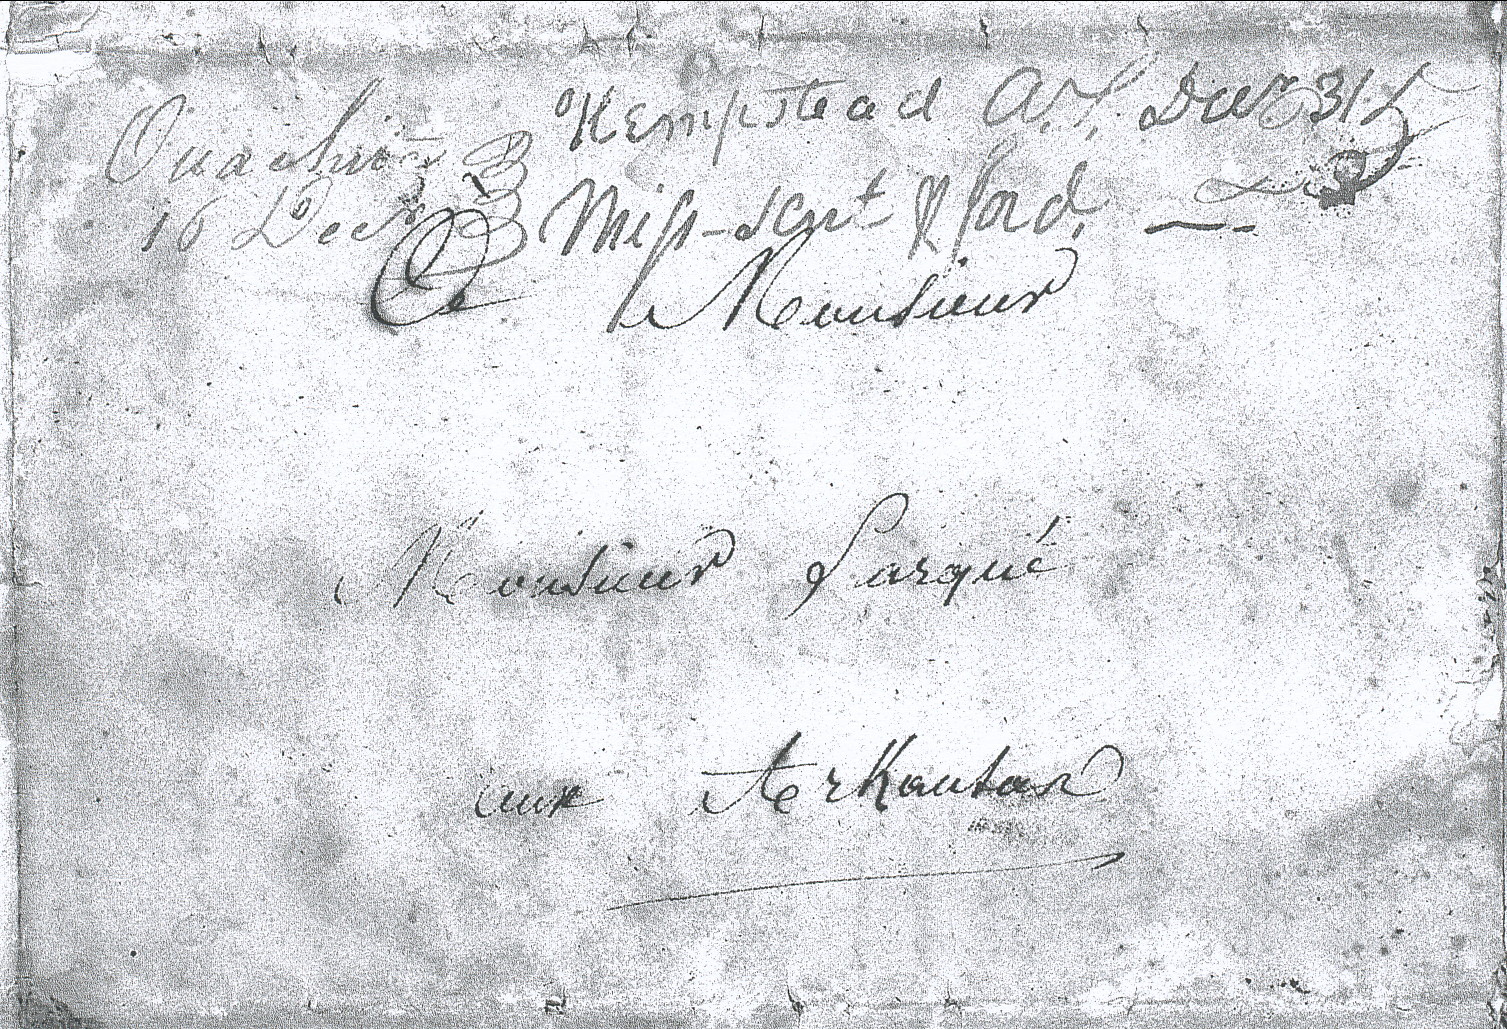 Ouachita
16 Decr
Hempstead A.T. Decr 31
Miss-sent & ford.
A Monsieur
Monsieur Sarqué
aux Arkansas